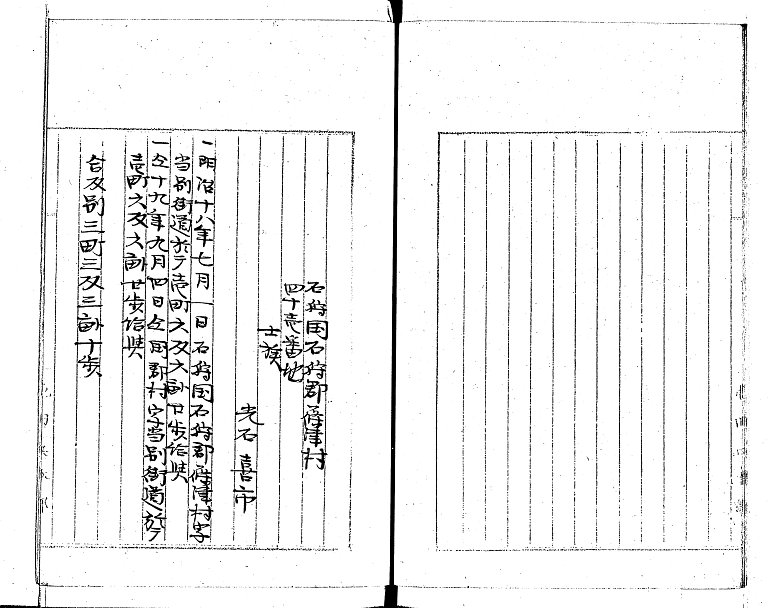 石狩国石狩郡篠津村
四十壱番地
士族
光石喜市
一明治十八年七月一日石狩国石狩郡篠津村字
当別街道於テ壱町六反六畝廿歩給与
一仝十九年九月四日仝国郡村字当別街道ニ於テ
壱町六反六畝廿歩給与
合反別三町三反三畝十歩